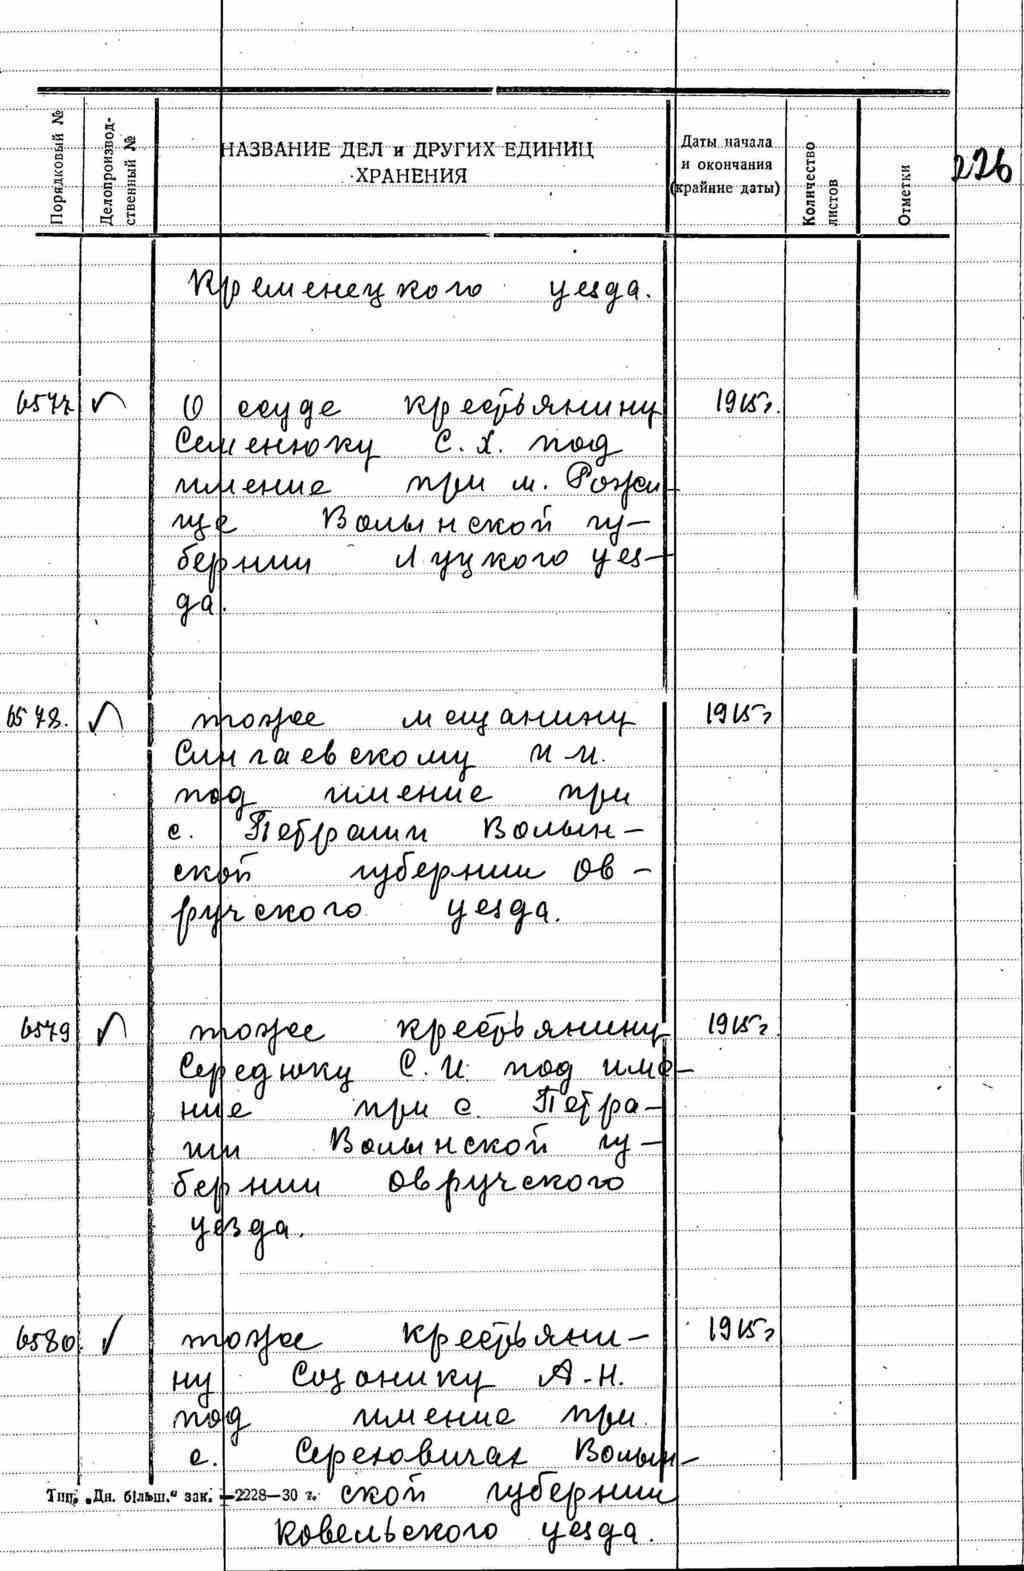 226
Порядковый №
Делопроизвод-
ственный №
НАЗВАНИЕ ДЕЛ и ДРУГИХ ЕДИНИЦ
ХРАНЕНИЯ
Даты начала
и окончания
(крайние даты)
Количество
листов
Отметки
Кременецкого уезда.
6577 О ссуде крестьянину 1915г.
Семенюку С.Х. под
имение при м. Рожи-
ще Волынской гу-
бернии Луцкого уез-
да.
6578. тоже мещанину 1915г
Сингаевскому И.И.
под имение при
с. Петраши Волын-
ской губернии Ов-
ручского уезда.
6579 тоже крестьянину 1915г.
Середюку С.И. под име-
ние при с. Петра-
ши Волынской гу-
бернии Овручского
уезда.
6580. тоже крестьяни- 1915г
ну Соцонику А.Н.
под имение при
с. Сереховичах Волын-
ской губернии
Ковельского уезда.
Тип. „Дн. більш.“ зак. —2228—30 г.